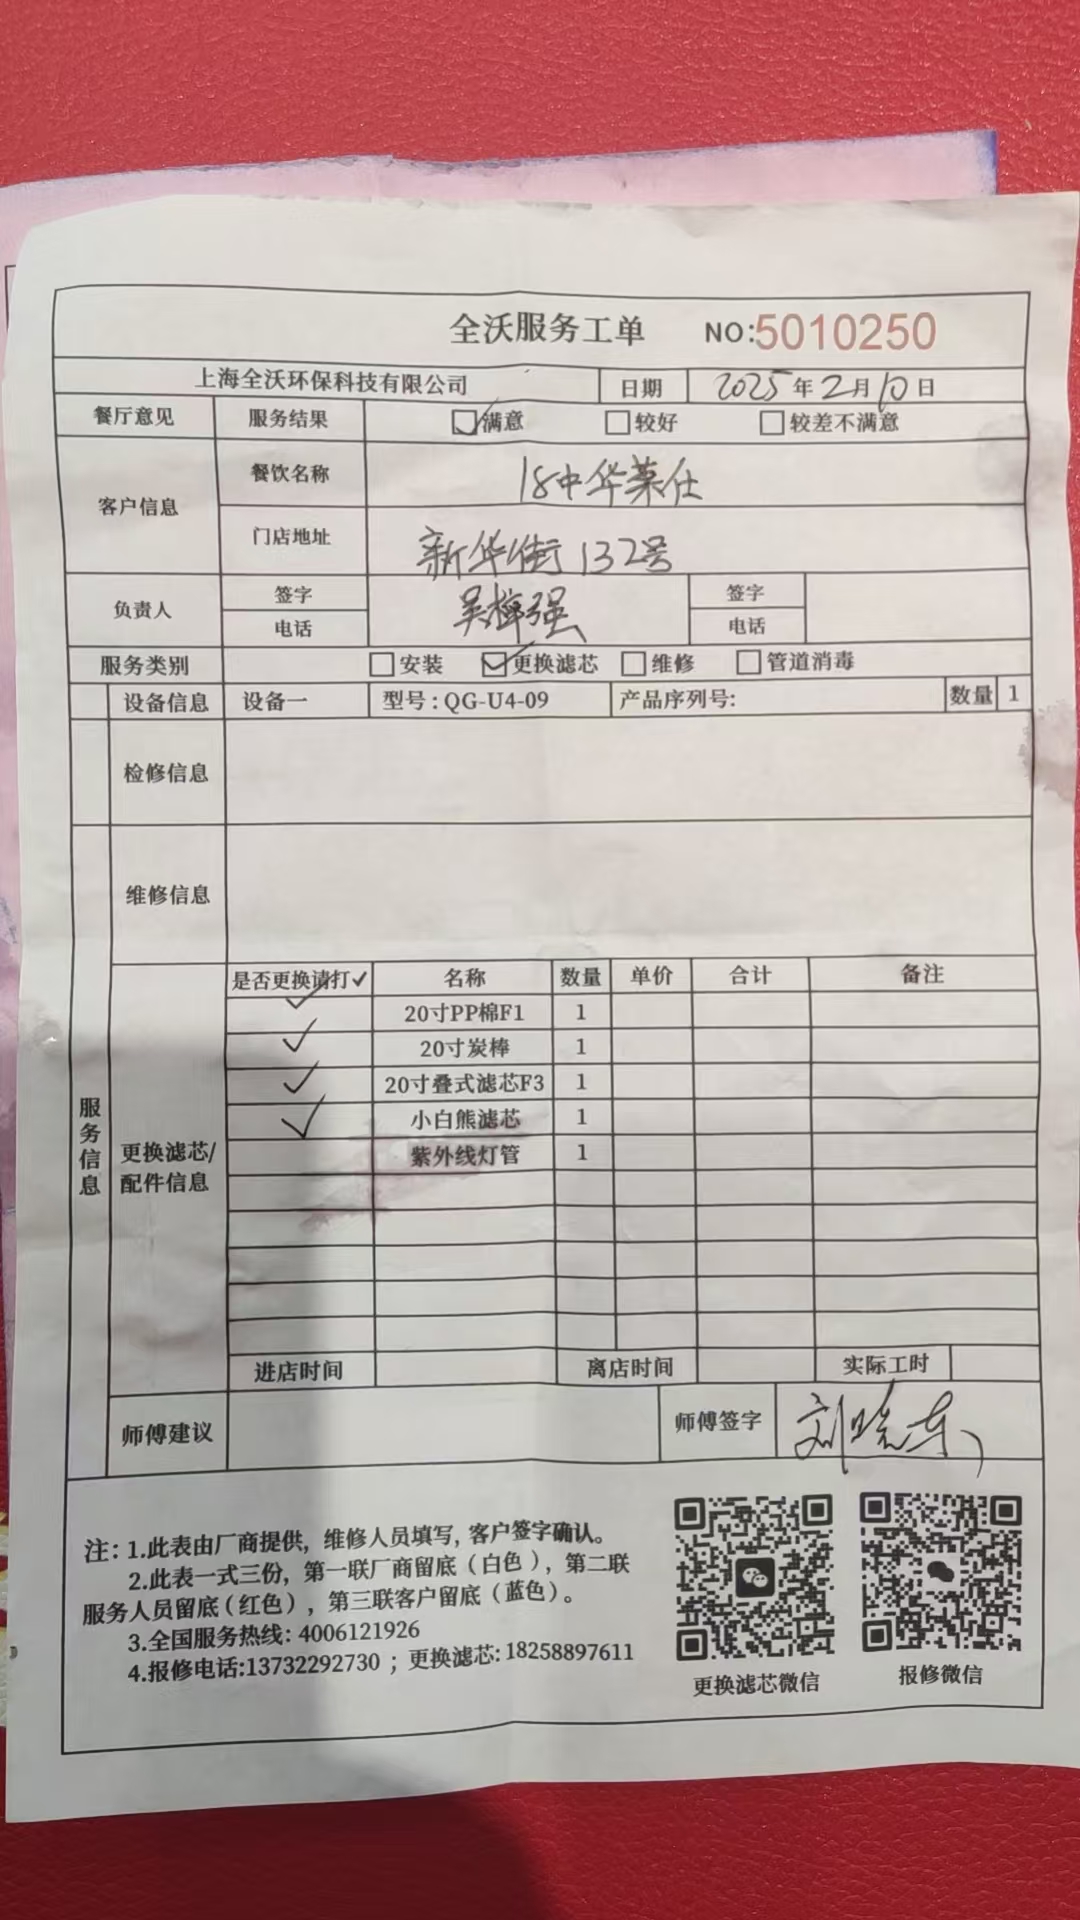 全沃服务工单 NO:5010250
上海全沃环保科技有限公司 日期 2025年2月10日
餐厅意见 服务结果 满意 较好 较差不满意
客户信息 餐饮名称 18中华莱仕
门店地址 新华街132号
负责人 签字 吴梓强 签字
电话 电话
服务类别 安装 更换滤芯 维修 管道消毒
设备信息 设备一 型号:QG-U4-09 产品序列号: 数量 1
检修信息
维修信息
服务信息
更换滤芯/配件信息
是否更换请打✓ 名称 数量 单价 合计 备注
✓ 20寸PP棉F1 1
✓ 20寸炭棒 1
✓ 20寸叠式滤芯F3 1
✓ 小白熊滤芯 1
紫外线灯管 1
进店时间 离店时间 实际工时
师傅建议 师傅签字 刘晓东
注:1.此表由厂商提供,维修人员填写,客户签字确认。
2.此表一式三份,第一联厂商留底(白色),第二联
服务人员留底(红色),第三联客户留底(蓝色)。
3.全国服务热线:4006121926
4.报修电话:13732292730;更换滤芯:18258897611
更换滤芯微信 报修微信